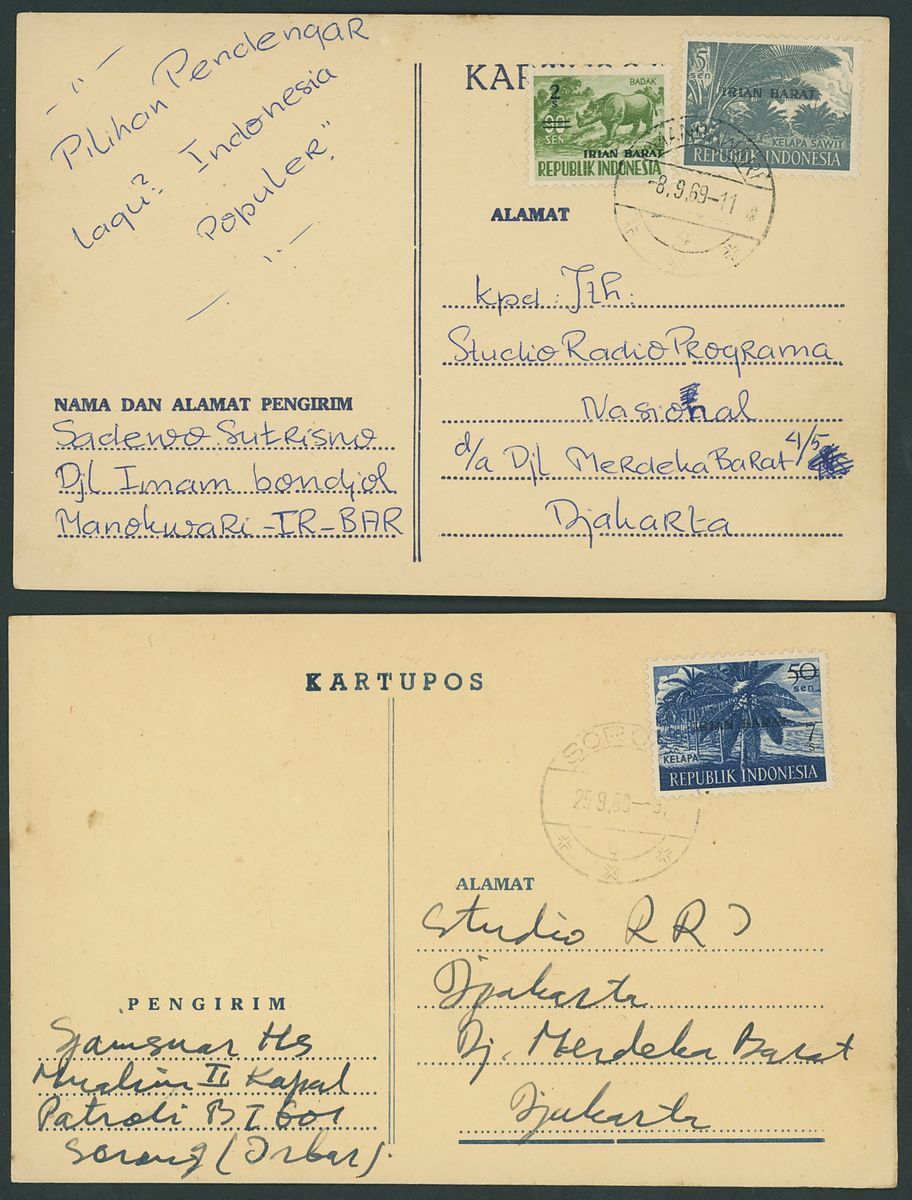 —"—
Pilihan Pendengar
Lagu² Indonesia
Populer."
—"—
NAMA DAN ALAMAT PENGIRIM
Sadewo Sutrisno
Djl Imam bondjol
Manokwari-IR-BAR
2
s
90
SEN
BADAK
IRIAN BARAT
REPUBLIK INDONESIA
5
sen
IRIAN BARAT
KELAPA SAWIT
REPUBLIK INDONESIA
-8.9.69-11
4
ALAMAT
kpd : Jth:
Studio Radio Programa
Nasional
d/a Djl Merdeka Barat 4/5
Djakarta
KARTUPOS
50
sen
IRIAN BARAT
7
s
KELAPA
REPUBLIK INDONESIA
25.9.69
ALAMAT
Studio RRI
Djakarta
Dj. Merdeka Barat
Djakarta
PENGIRIM
Sjamsuar Hs
Mualim II Kapal
Patroli B I 601
Sorong (Irbar).